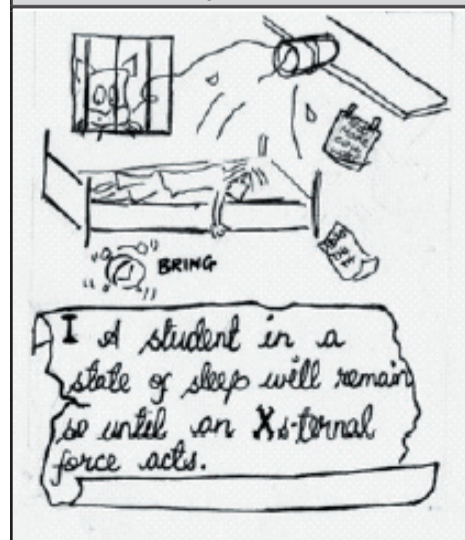 BRING
I A student in a
state of sleep will remain
so until an Xs-ternal
force acts.